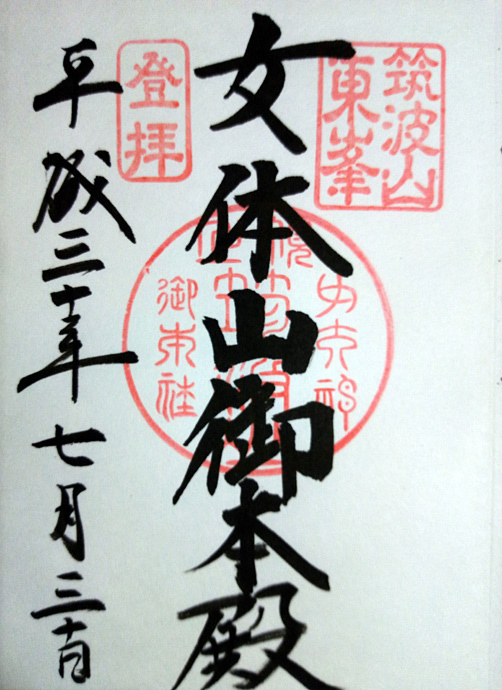 筑波山
東峯
女体山御本殿
登拝
平成三十年七月三十日
御本社